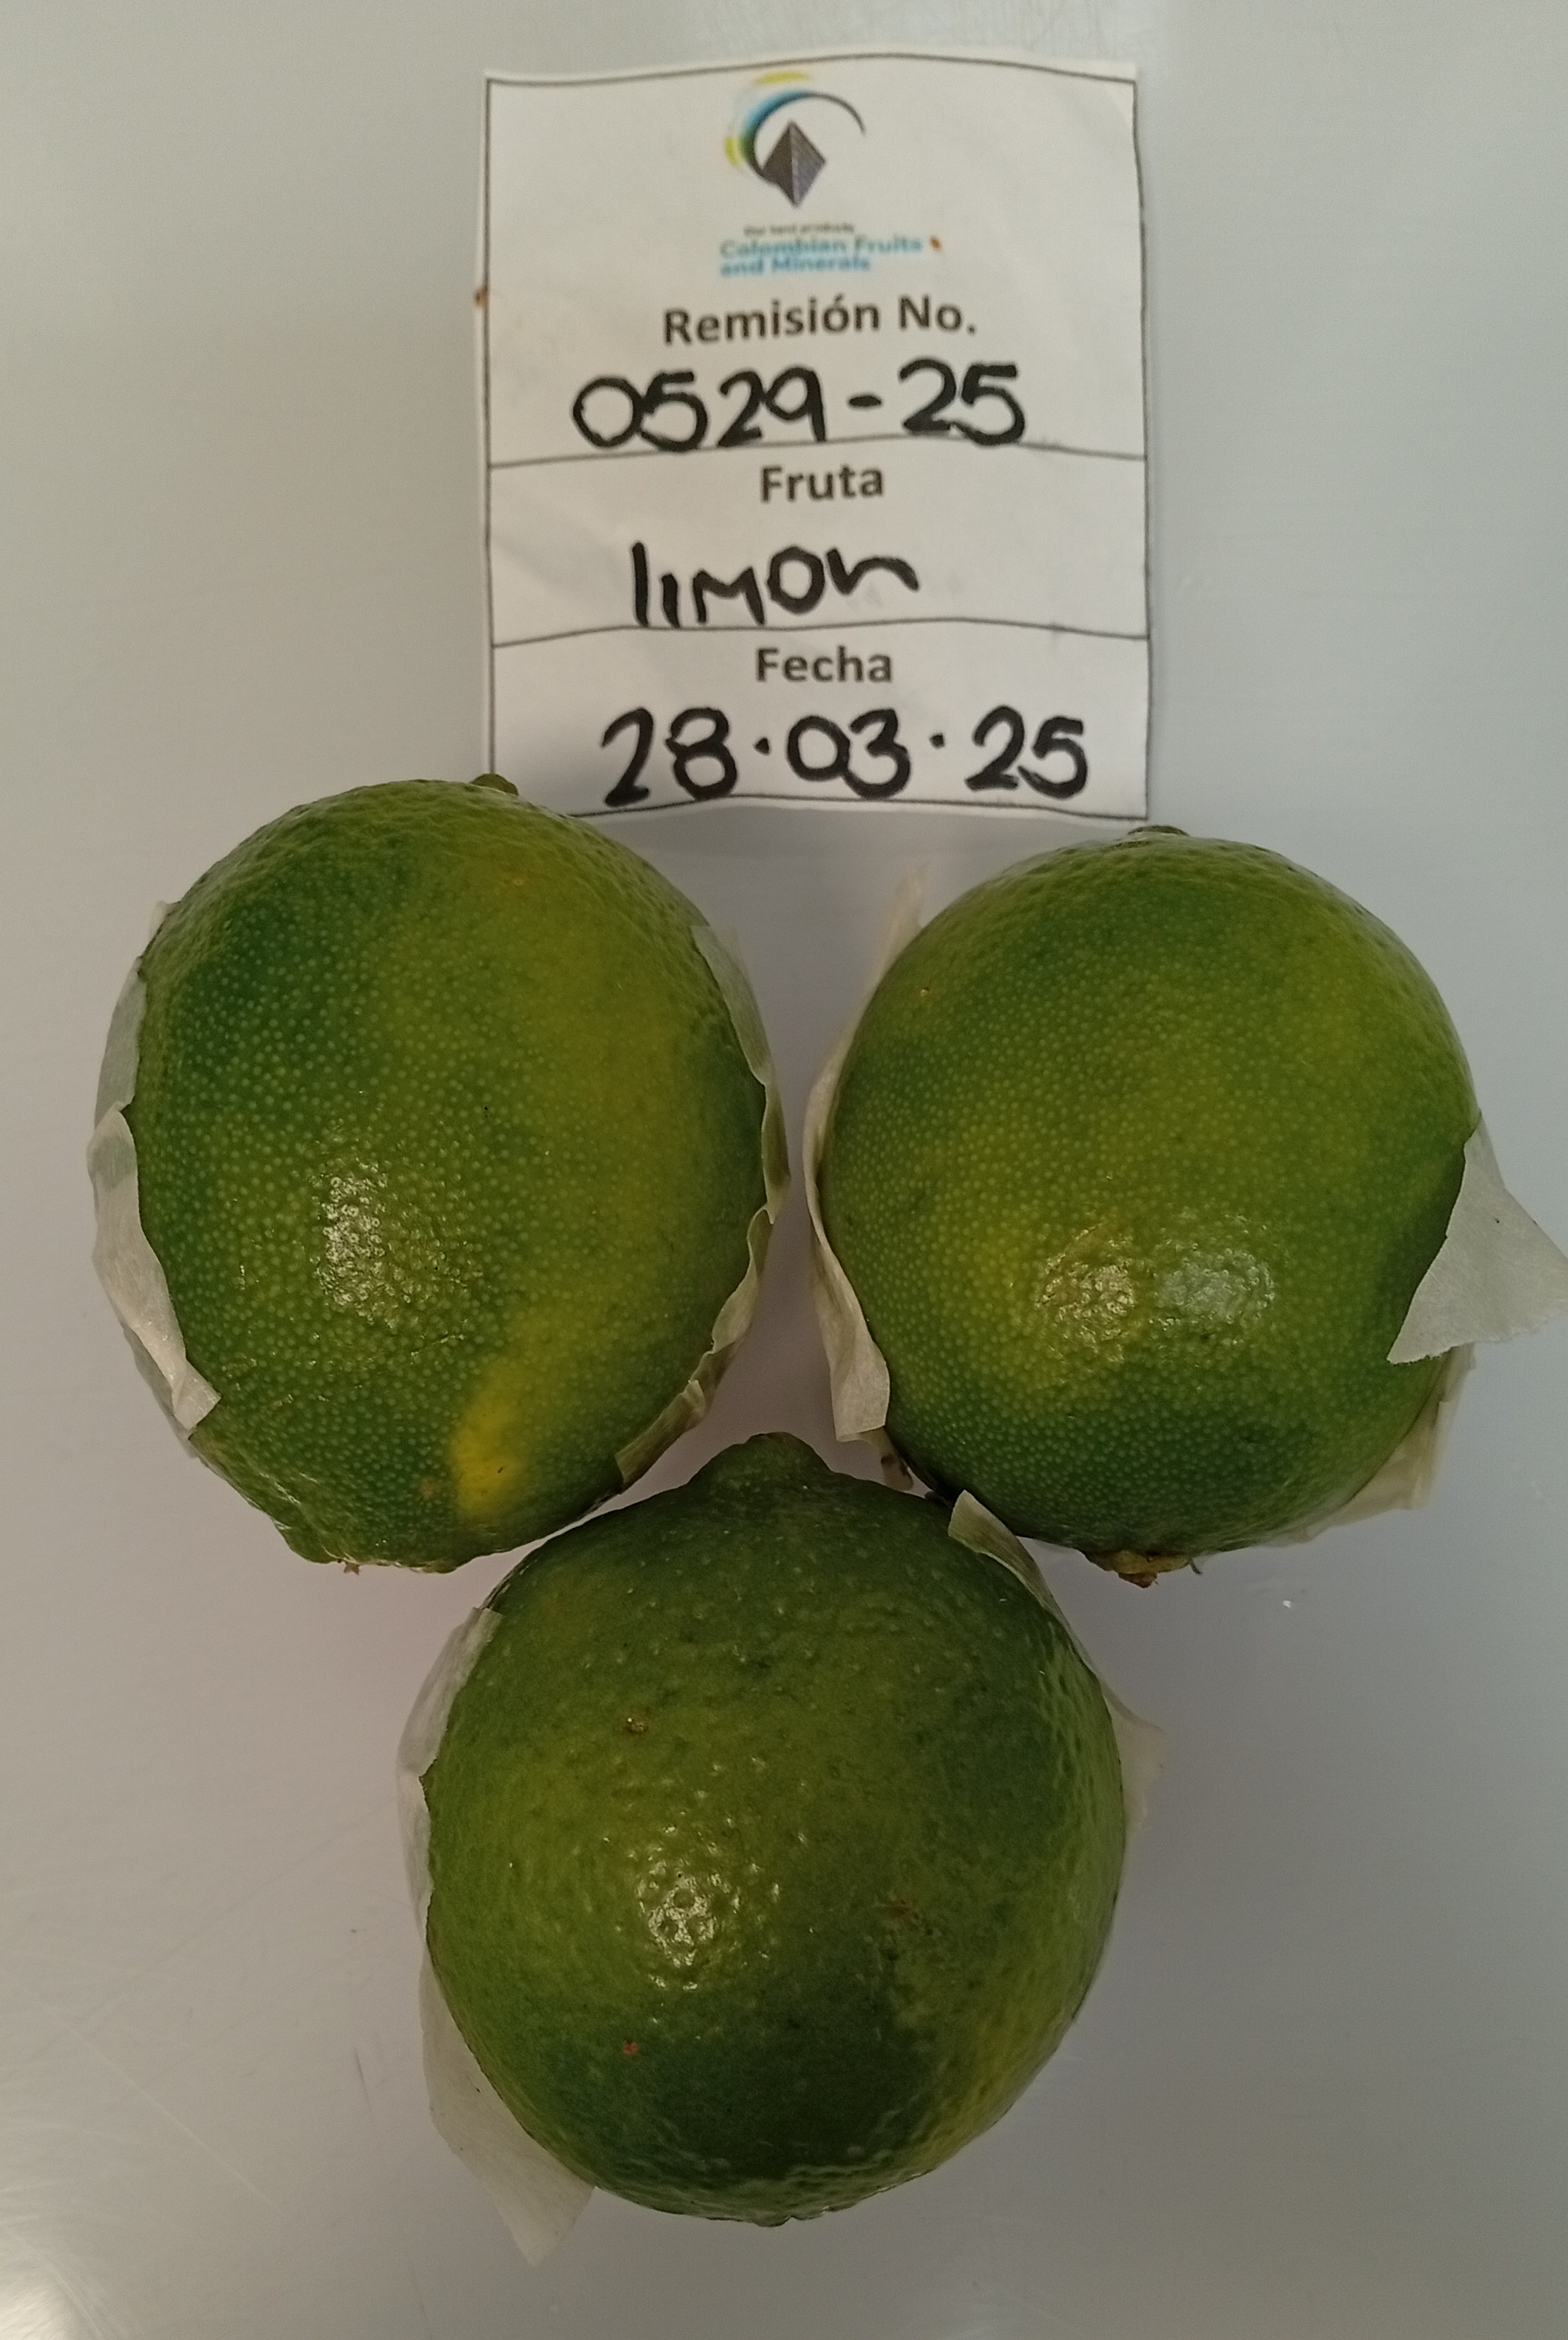 Our best products
Colombian Fruits
and Minerals
Remisión No.
0529-25
Fruta
limon
Fecha
28.03.25